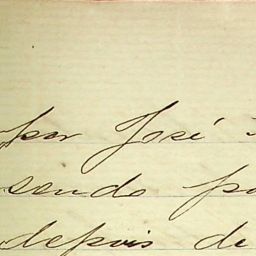 por José
sendo
depois de